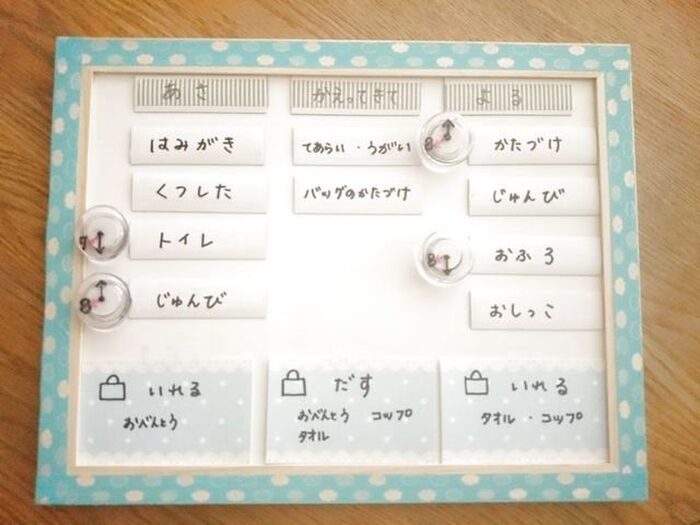 あさ
はみがき
くつした
7 トイレ
8 じゅんび
いれる
おべんとう
かえってきて
てあらい・うがい
バッグのかたづけ
だす
おべんとう コップ
タオル
よる
8 かたづけ
じゅんび
8 おふろ
おしっこ
いれる
タオル・コップ